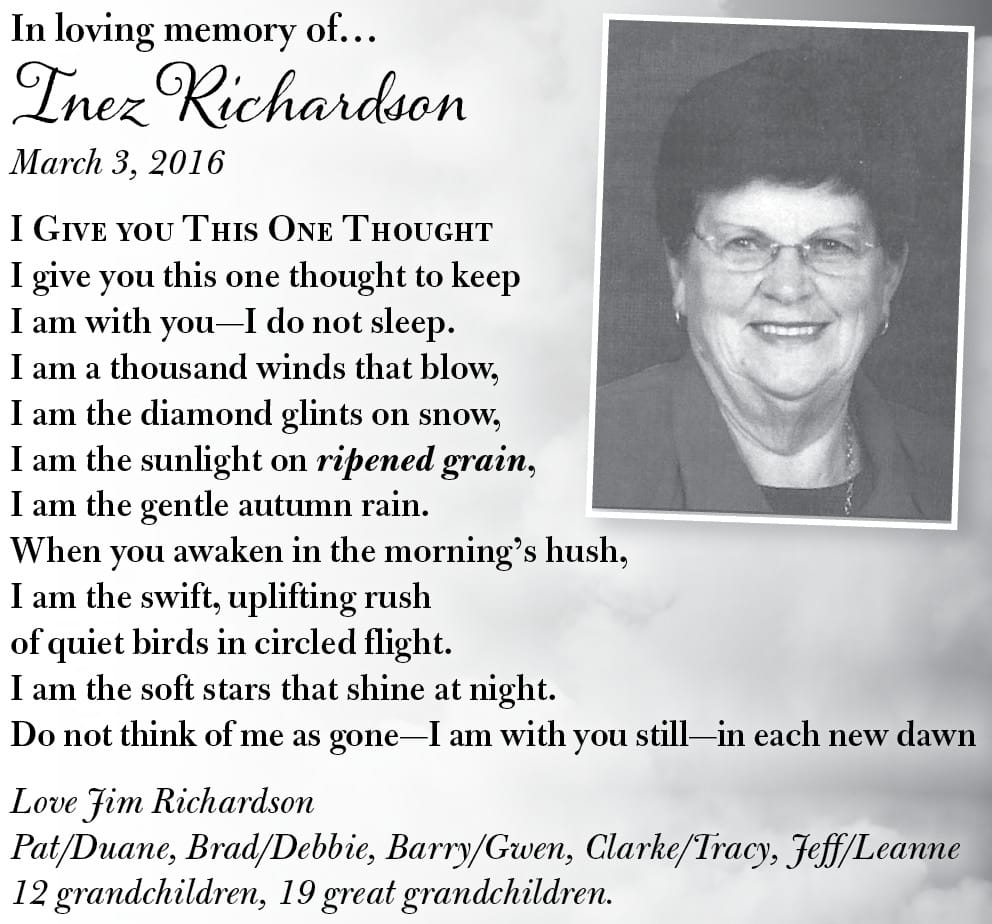 In loving memory of…
Inez Richardson
March 3, 2016
I Give you This One Thought
I give you this one thought to keep
I am with you—I do not sleep.
I am a thousand winds that blow,
I am the diamond glints on snow,
I am the sunlight on ripened grain,
I am the gentle autumn rain.
When you awaken in the morning’s hush,
I am the swift, uplifting rush
of quiet birds in circled flight.
I am the soft stars that shine at night.
Do not think of me as gone—I am with you still—in each new dawn
Love Jim Richardson
Pat/Duane, Brad/Debbie, Barry/Gwen, Clarke/Tracy, Jeff/Leanne
12 grandchildren, 19 great grandchildren.